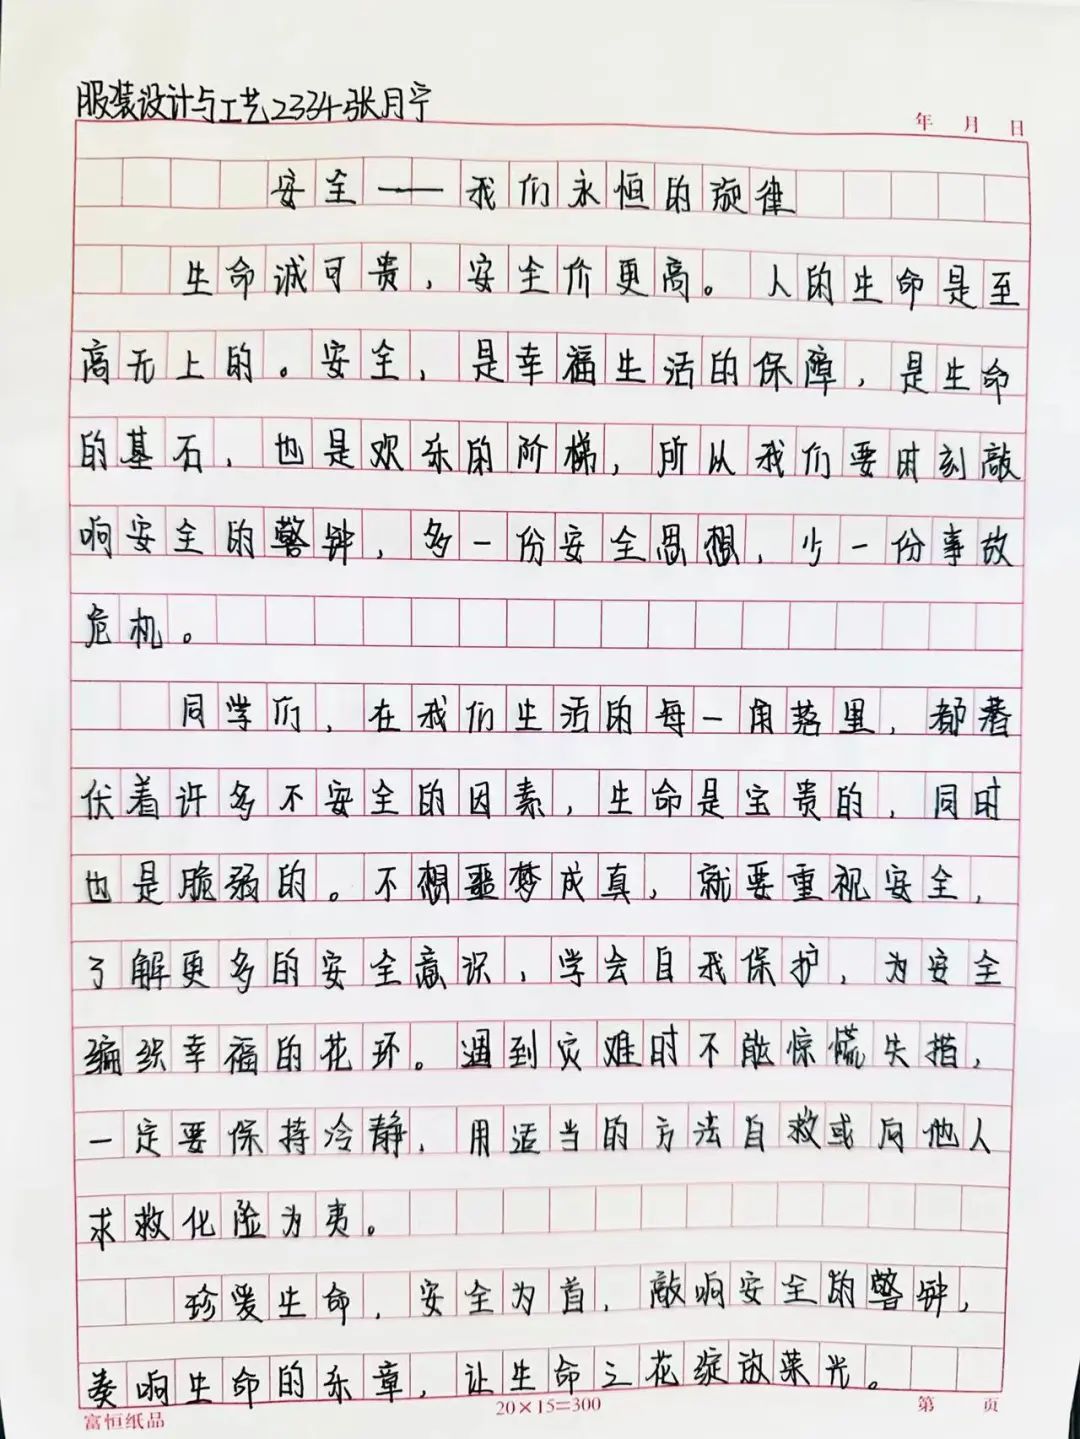 服装设计与工艺2334张月宁
年 月 日
安全——我们永恒的旋律
生命诚可贵，安全价更高。人的生命是至
高无上的。安全，是幸福生活的保障，是生命
的基石，也是欢乐的阶梯，所以我们要时刻敲
响安全的警钟，多一份安全思想，少一份事故
危机。
同学们，在我们生活的每一角落里，都潜
伏着许多不安全的因素，生命是宝贵的，同时
也是脆弱的。不想噩梦成真，就要重视安全，
了解更多的安全意识，学会自我保护，为安全
编织幸福的花环。遇到灾难时不能惊慌失措，
一定要保持冷静，用适当的方法自救或向他人
求救化险为夷。
珍爱生命，安全为首，敲响安全的警钟，
奏响生命的乐章，让生命之花绽放荣光。
富恒纸品 20×15=300 第 页